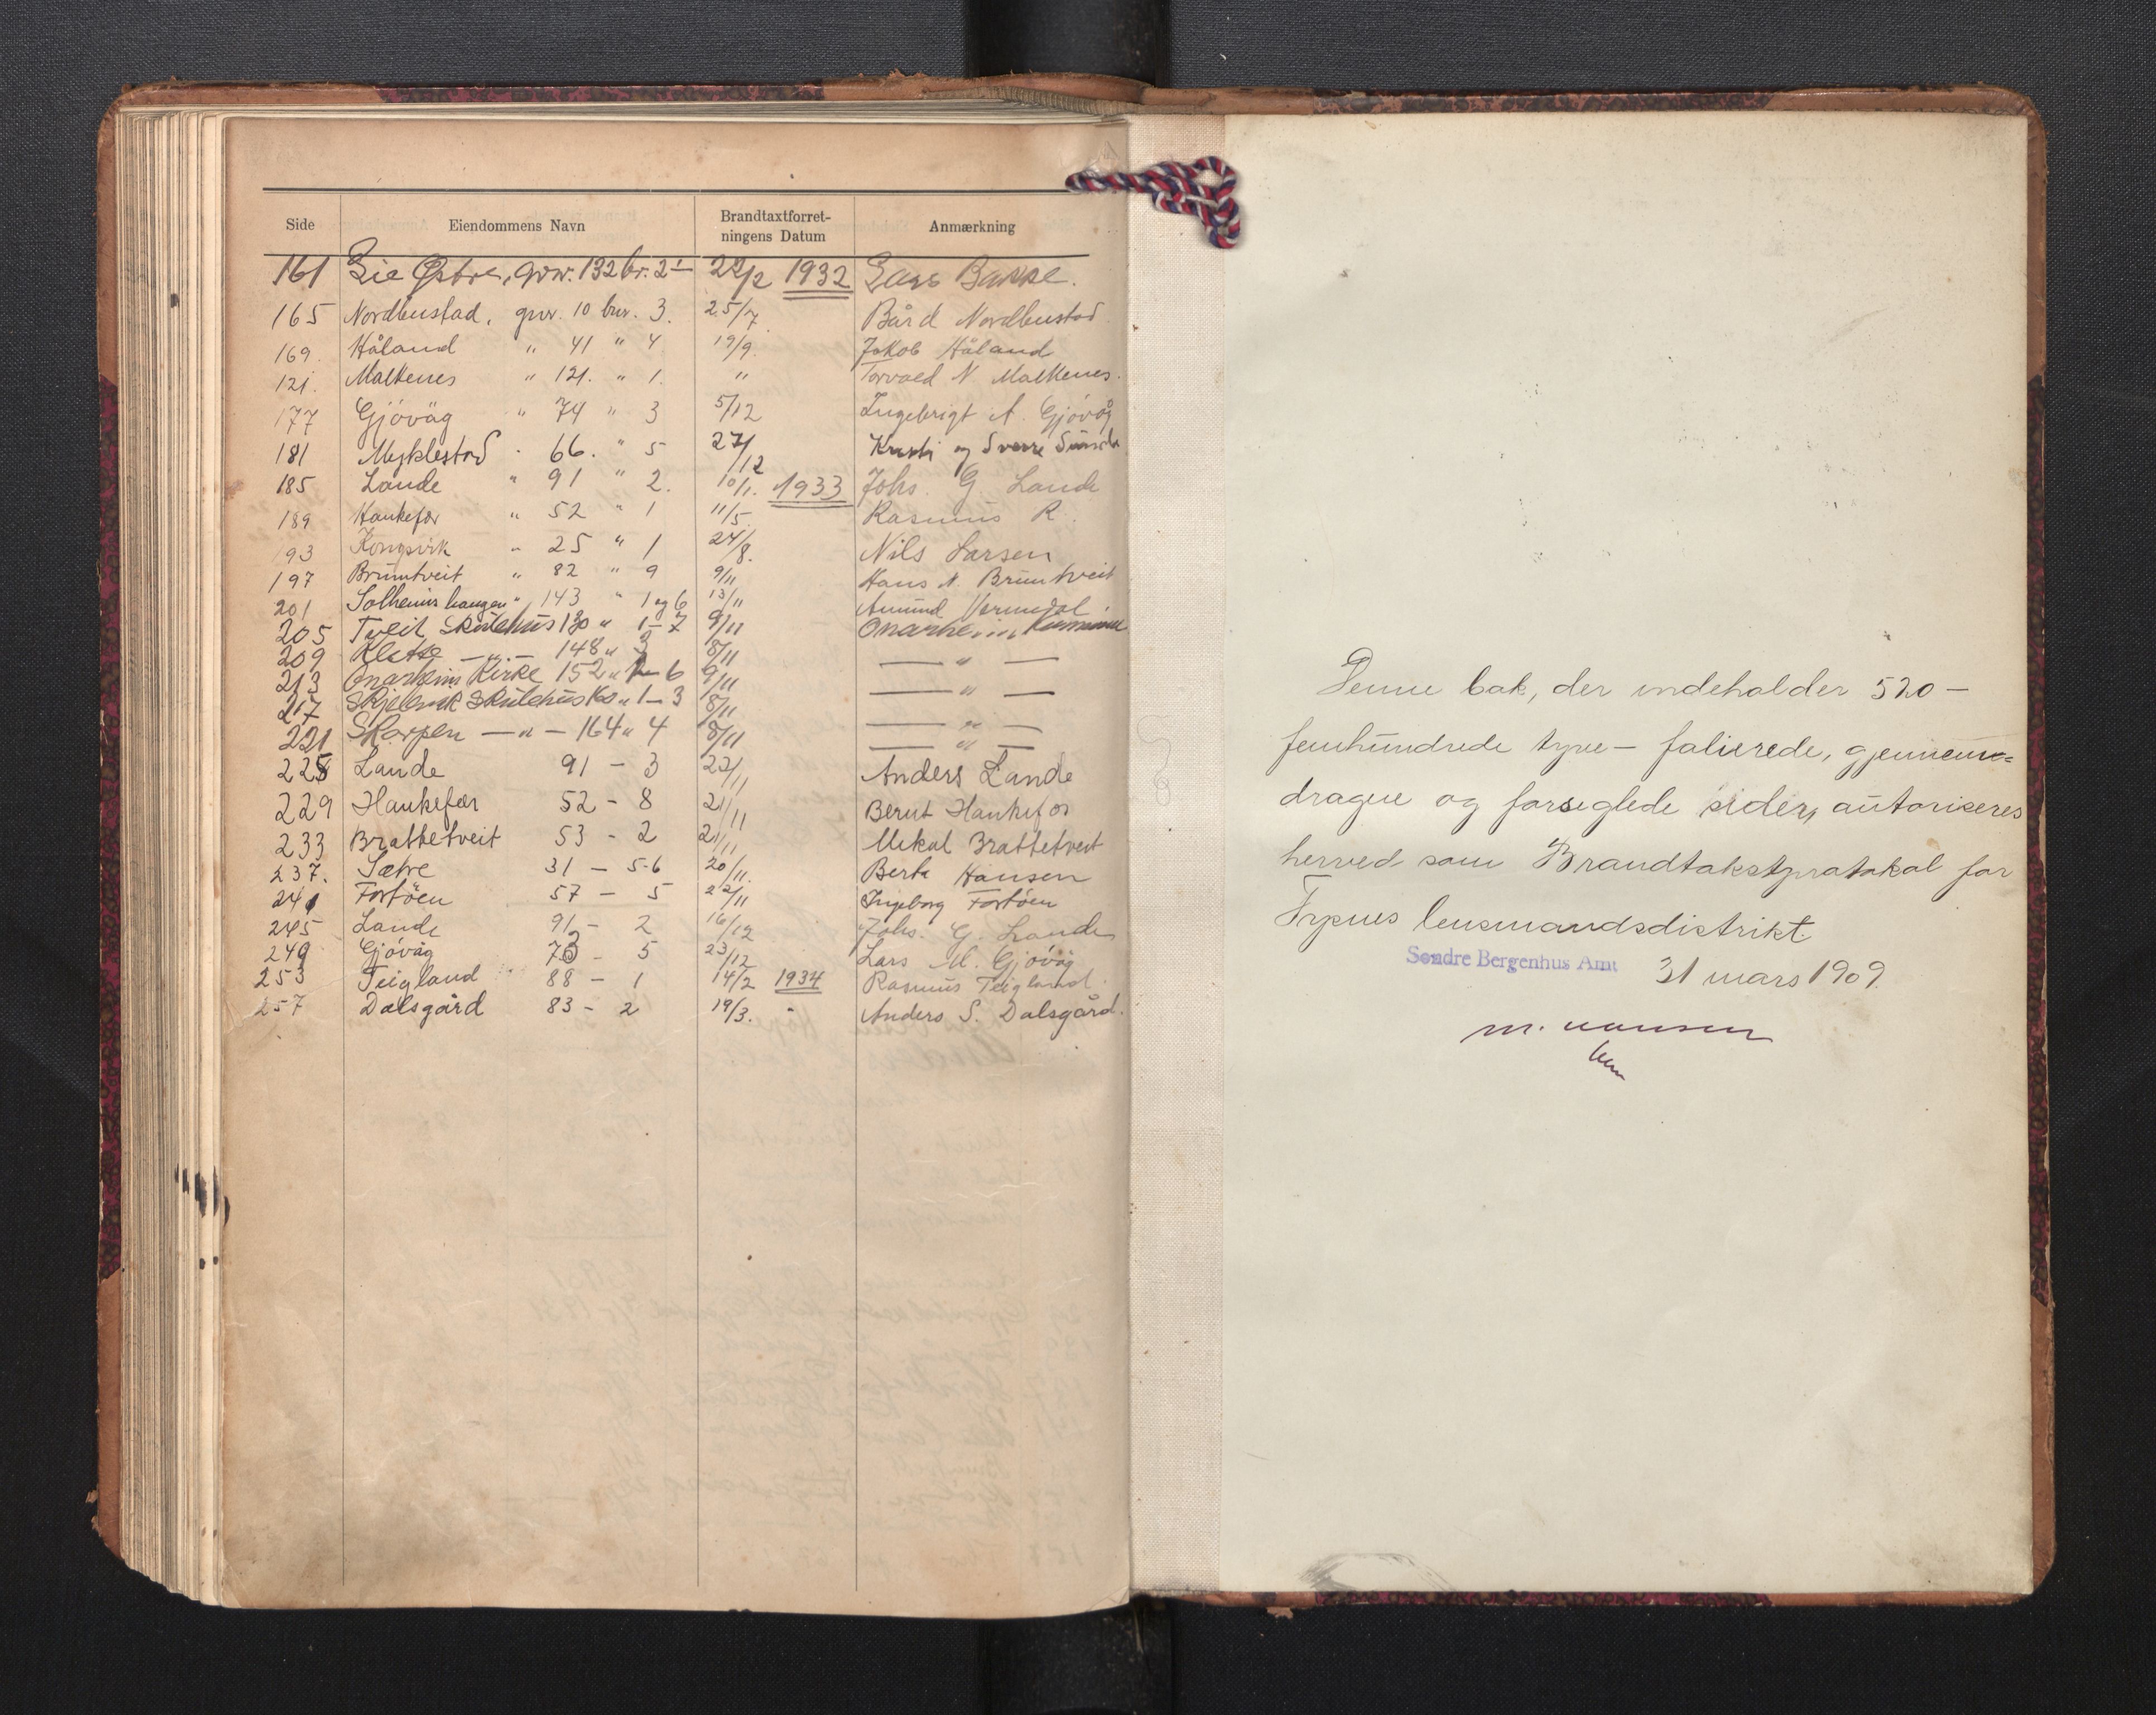 Side Eiendommens Navn Brandtaxtforret-
ningens Datum Anmærkning
161 Lie Østre, gnr. 132 br. 2 22/2 1932 Lars Bakke.
165 Nordhustad, gnr. 10 bnr. 3. 25/7. Bård Nordhustad
169. Håland " 41 " 4 19/9. Jakob Håland
121. Malkenes " 121. " 1. " Torvald N. Malkenes.
177 Gjövåg " 74 " 3 5/12 Ingebrigt A. Gjövåg
181 Myklestad " 66. " 5 27/12 og Sverre
185 Lande " 91 " 2. 10/1. 1933 Johs. G. Lande
189 Haukefær " 52 " 1 11/5. Rasmus R.
193 Kongsvik " 25 " 1 24/8. Nils Larsen
197 Bruntveit " 82 " 9 9/11 Hans N. Bruntveit
201 Solheimshaugen " 143 " 1 og 6 13/11 Amund
205 Tveit Skulehus 130 " 1-7 9/11 Onarheim Kommune
209 Klette — " — 148 " 3 8/11 — " —
213 Onarheim Kirke 152 " 6 9/11 — " —
217 Skulehus 160 " 1-3 8/11 — " —
221 Skorpen — " — 164 " 4 8/11 — " —
225 Lande 91 - 3 22/11 Anders Lande
229 Haukefær 52 - 8 21/11 Berut Haukefær
233 Brattetveit 53 - 2 21/11 Mikal Brattetveit
237. Sætre 31 - 5-6 20/11. Berta Hansen
241 Fortöen 57 - 5 22/11 Ingeborg Fortöen
245 Lande 91 - 2 16/12 Johs. G. Lande
249 Gjövåg 73 - 5 23/12 Lars M. Gjövåg
253 Teigland 88 - 1 14/2 1934 Rasmus Teigland.
257 Dalsgård 83 - 2 19/3. " Anders S. Dalsgård.
Denne bok, der indeholder 520 —
femhundrede tyve — folierede, gjennem=
dragne og forseglede sider, autoriseres
herved som Brandtakstprotokol for
Fypnes lensmandsdistrikt.
Søndre Bergenhus Amt 31 mars 1909.
M. Hansen